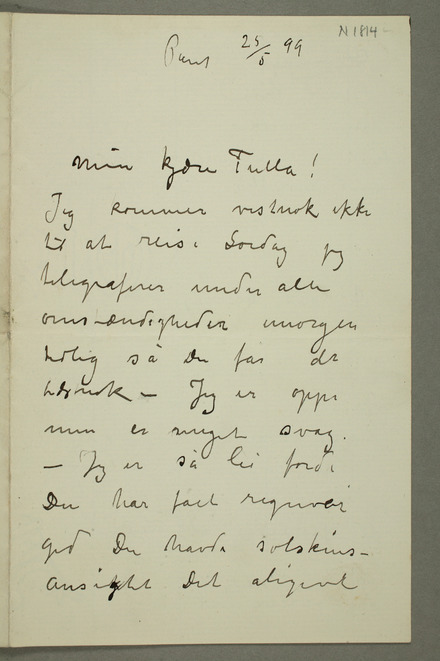 N 1814
Paris 25/5 99
Min kjære Tulla!
Jeg kommer vistnok ikke
til at reise Lordag jeg
telegraferer under alle
omstændigheder imorgen
tidlig så Du får det
tidsnok – Jeg er oppe
men er meget svag.
– Jeg er så lei fordi
Du har fået regnveir
gid Du havde solskins-
ansigtet Det aligevel